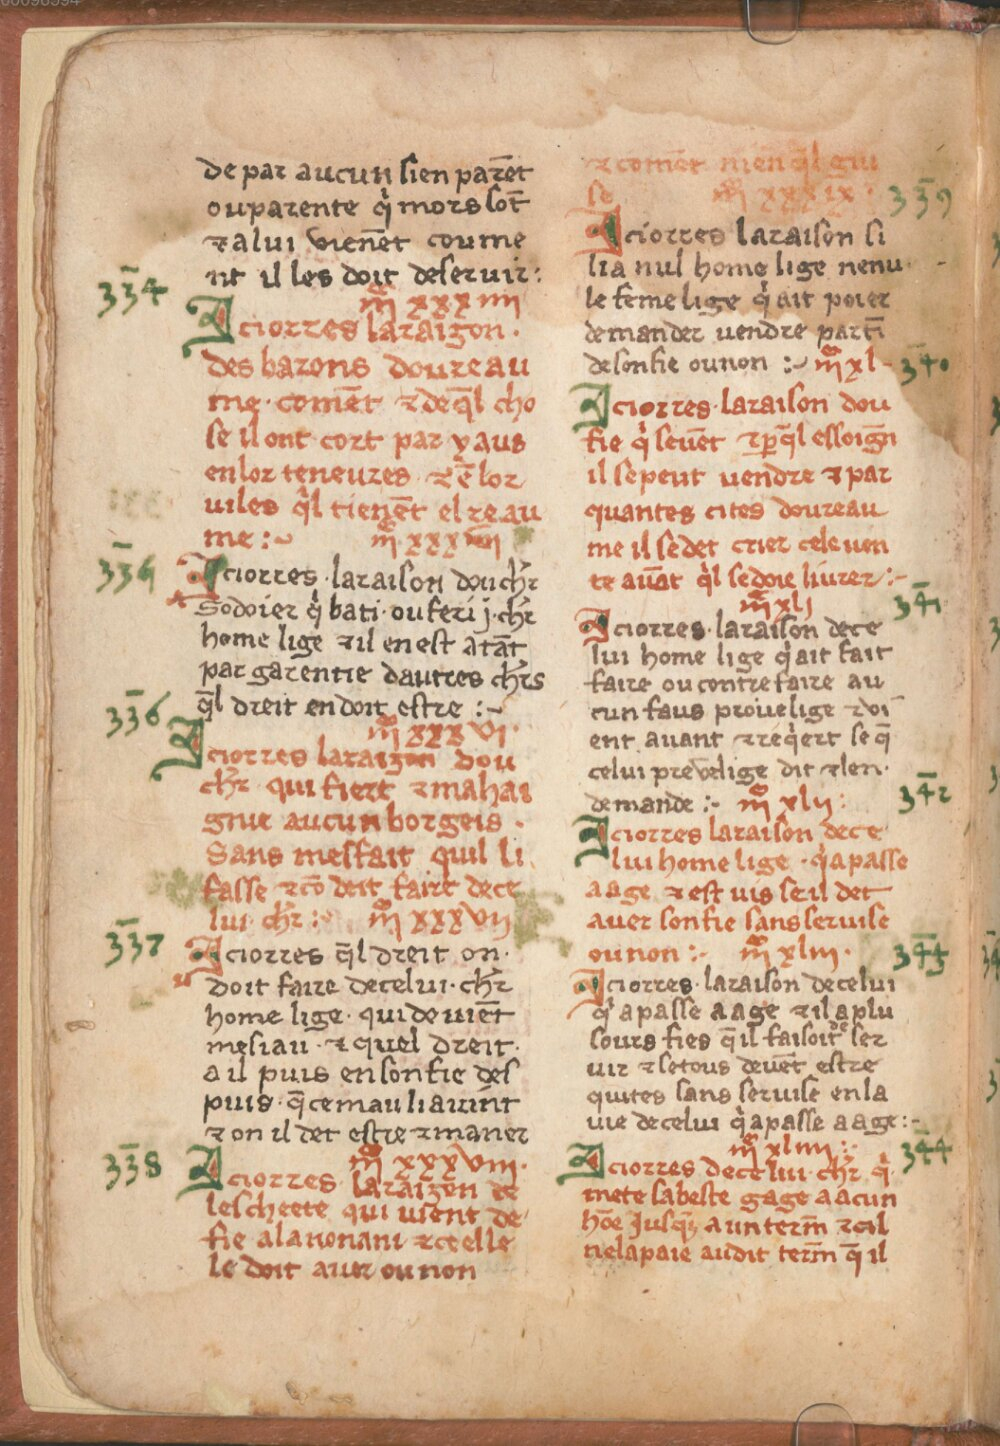 de par aucun sien parēt
ou parente q̇ mors sōt
⁊ a lui vienēt coume
nt il les doit deservir:
334
m̄ xxxiiii
A ciorres laraizon·
des barons doureau
me· comēt ⁊ de q̄l cho
se il ont cort par yaus
en lor teneures ⁊ ē lor
viles q̇l tienēt el reau
me :~
335
A ciorres· laraison dou ch̄r
Sodoier q̇ bati· ou feri j· ch̄r
home lige ⁊ il en est atāt
par garentie dautres ch̄rs
q̄l dreit en doit estre :~
336
m̄ xxxvi·
A ciorres laraizon dou
ch̄r qui fiert ⁊ mahai
gnie aucun borgeis·
Sans mesfait quil li
fasse ⁊ cō deit faire de ce
lui ch̄r :~ m̄ xxxvii
337
A ciorres q̄l dreit on·
doit faire de celui· ch̄r
home lige· qui devient̄
mesiau· ⁊ quel dreit·
a il puis en son fie des
puis· q̄ ce mau li avint
⁊ on il det estre ⁊ maner
338
m̄ xxxviii·
A ciorres· laraizen de
lescheete qui vient de
fie a lavonant ⁊ ce elle
le doit aver ou non
⁊ comēt nien q̄l gui
se m̄ xxxix· 339
A ciorres laraison si
li a nul home lige nenu·
le feme lige q̇ ait poier
demander vendre parti
de son fie ou non :~ m̄ xl~ 340
A ciorres· laraison dou
fie q̇ se vēt ⁊ p̱ q̄l essoign̄
il se peut vendre ⁊ par
quantes cites doureau
me il se det crier cele ven
te avāt q̇l se doie livrer:~
m̄ xlj 341
A ciorres· laraison de ce
lui home lige q̇ ait fait
faire ou contrefaire au
cun faus privelige ⁊ vi
ent avant ⁊ req̇ert se q̄
celui prevelige dit ⁊ len·
demande :~ m̄ xlii: 342
A ciorres laraison de ce
lui home lige· q̇ a passe
aage ⁊ est vis se il det
aver son fie sans servise
ou non :~ m̄ xliii· 343
A ciorres· laraison de celui
q̇ a passe aage ⁊ il a plu
sours fies q̄ il faisoit de ser
vir ⁊ se tous devēt estre
quites sans servise en la
vie de celui q̇ a passe aage:~
m̄ xliiii:~ 344
A ciorres de ce lui· ch̄r q̇·
mete sa beste gage a acun
hōe jusq̄ a un term̄ ⁊ cil
ne la paie audit term̄ q̄ il